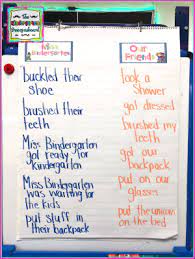 The
Kindergarten
Smorgasboard
Miss
Kindergarten
Our
Friends
buckled their
shoe
brushed their
teeth
Miss Bindergarten
got ready for
Kindergarten
Miss Bindergarten
was waiting for
the kids
put stuff in
their backpack
took a
shower
got dressed
brushed my
teeth
get our
backpack
put on our
glasses
put the unicorn
on the bed